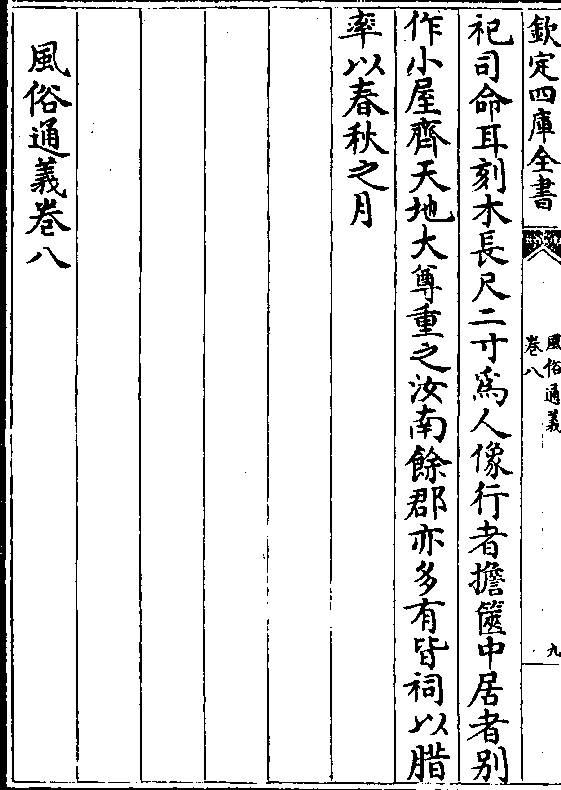 欽定四庫全書
風俗通義
卷八
九
祀司命耳刻木長尺二寸為人像行者擔篋中居者别
作小屋齊天地大尊重之汝南餘郡亦多有皆祠以腊
率以春秋之月
風俗通義卷八